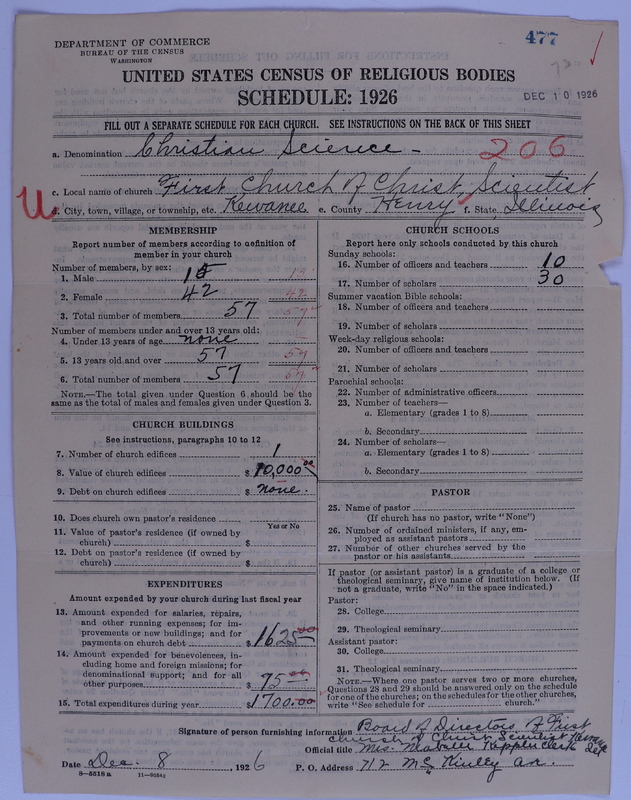 DEPARTMENT OF COMMERCE
BUREAU OF THE CENSUS
WASHINGTON
477
DEC 10 1926
UNITED STATES CENSUS OF RELIGIOUS BODIES
SCHEDULE: 1926
FILL OUT A SEPARATE SCHEDULE FOR EACH CHURCH. SEE INSTRUCTIONS ON THE BACK OF THIS SHEET
a. Denomination Christian Science - 206
c. Local name of church First Church of Christ, Scientist
d. City, town, village, or township, etc. Kewanee e. County Henry f. State, Illinois
MEMBERSHIP
Report number of members according to definition of
member in your church
Number of members, by sex:
1. Male 15 15
2. Female 42 42
3. Total number of members 57 57
Number of members under and over 13 years old:
4. Under 13 years of age none
5. 13 years old and over 57 57
6. Total number of members 57 57
NOTE.—The total given under Question 6 should be the
same as the total of males and females given under Question 3.
CHURCH BUILDINGS
See instructions, paragraphs 10 to 12
7. Number of church edifices 1
8. Value of church edifices $ 10,000 00
9. Debt on church edifices $ none.
10. Does church own pastor's residence
Yes or No
11. Value of pastor's residence (if owned by
church) $
12. Debt on pastor's residence (if owned by
church) $
EXPENDITURES
Amount expended by your church during last fiscal year
13. Amount expended for salaries, repairs,
and other running expenses; for im-
provements or new buildings; and for
payments on church debt $ 1625 00
14. Amount expended for benevolences, in-
cluding home and foreign missions; for
denominational support; and for all
other purposes $ 75 00
15. Total expenditures during year $ 1700.00
CHURCH SCHOOLS
Report here only schools conducted by this church
Sunday schools:
16. Number of officers and teachers 10
17. Number of scholars 30
Summer vacation Bible schools:
18. Number of officers and teachers
19. Number of scholars
Week-day religious schools:
20. Number of officers and teachers
21. Number of scholars
Parochial schools:
22. Number of administrative officers
23. Number of teachers—
a. Elementary (grades 1 to 8)
b. Secondary
24. Number of scholars—
a. Elementary (grades 1 to 8)
b. Secondary
PASTOR
25. Name of pastor
(If church has no pastor, write "None")
26. Number of ordained ministers, if any, em-
ployed as assistant pastors
27. Number of other churches served by the
pastor or his assistants
If pastor (or assistant pastor) is a graduate of a college or
theological seminary, give name of institution below. (If
not a graduate, write "No" in the space indicated.)
Pastor:
28. College
29. Theological seminary
Assistant pastor:
30. College
31. Theological seminary
NOTE.—Where one pastor serves two or more churches,
Questions 28 and 29 should be answered only on the schedule
for one of the churches; on the schedules for the other churches,
write "See schedule for church."
Signature of person furnishing information Board of Directors of First
Church of Christ Scientist Kewanee
Official title Mrs. Clerk Ill
Date Dec. 8, 1926 P. O. Address 712 McKinley Av.
8—5518 a 11—9054g